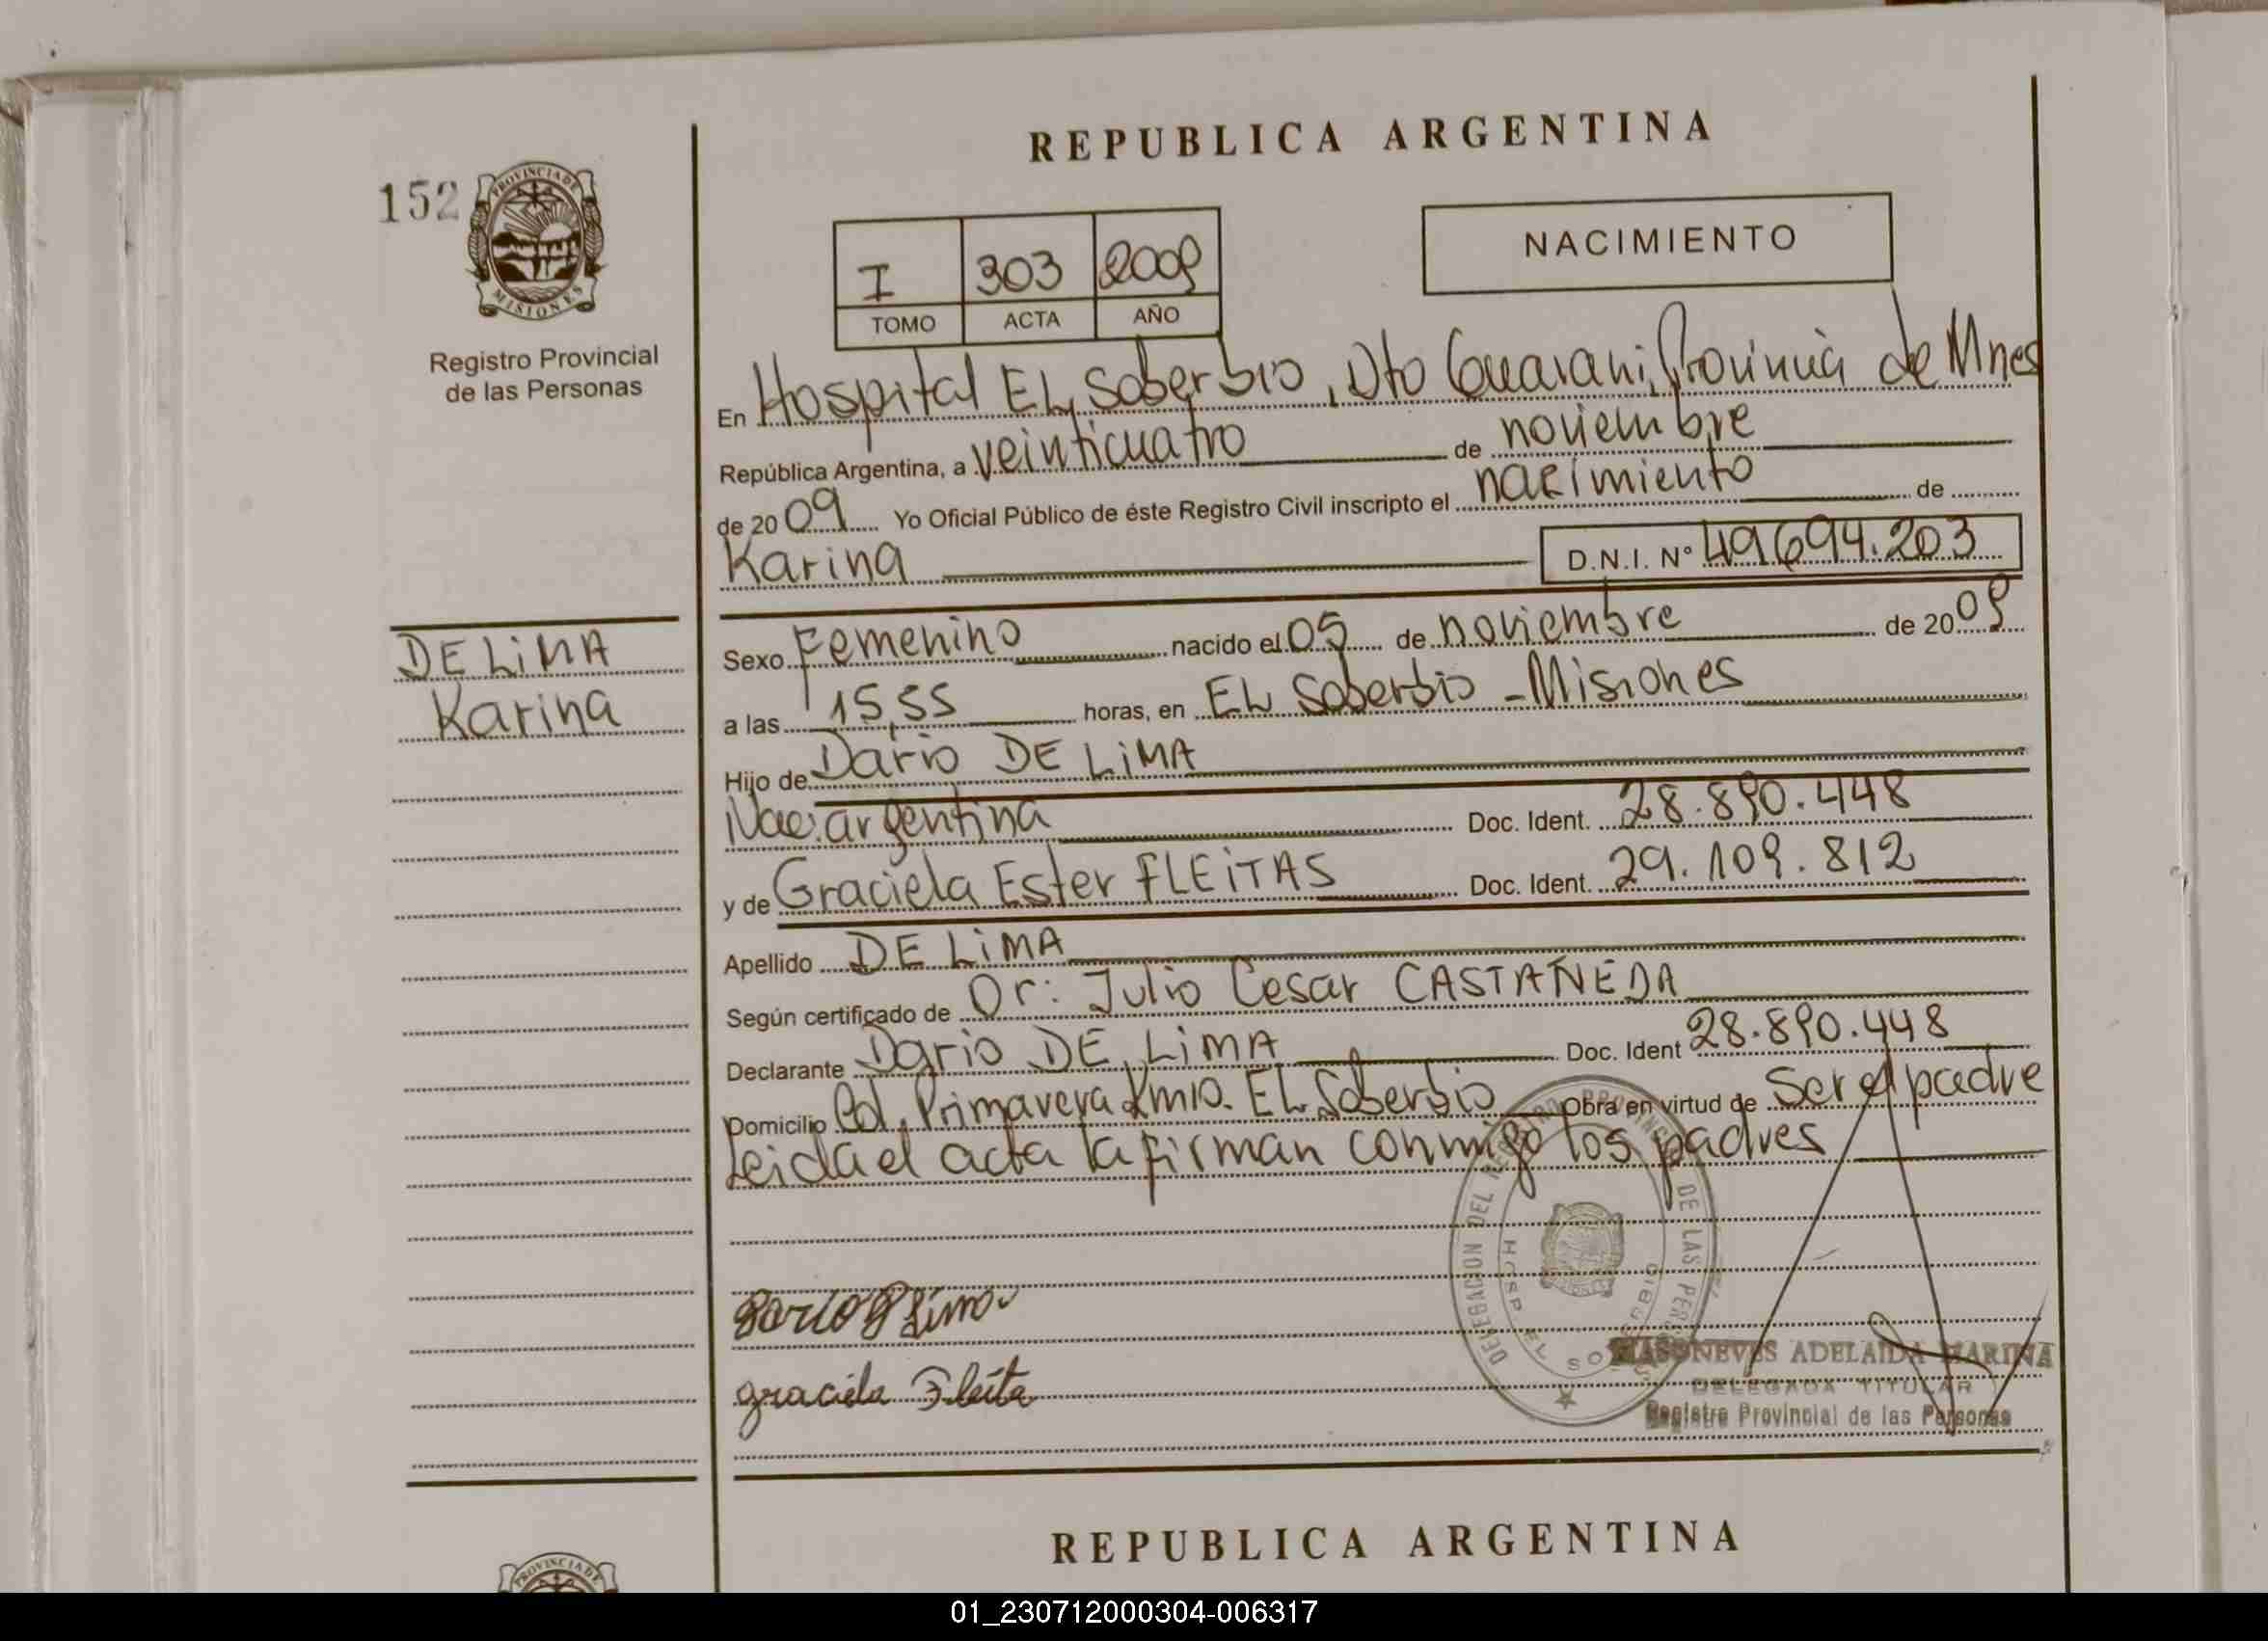 REPUBLICA ARGENTINA
152
PROVINCIA DE
MISIONES
Registro Provincial
de las Personas
I 303 2009
TOMO ACTA AÑO
NACIMIENTO
En Hospital EL Soberbio, Dto Guarani, Provincia de Mnes
República Argentina, a veinticuatro de noviembre
de 2009 Yo Oficial Público de éste Registro Civil inscripto el nacimiento de
Karina D.N.I. Nº 49694.203
DE LiMA
Karina
Sexo Femenino nacido el 05 de noviembre de 2009
a las 15,55 horas, en EL Soberbio - Misiones
Hijo de Dario DE LiMA
Nac. argentina Doc. Ident. 28.890.448
y de Graciela Ester FLEiTAS Doc. Ident. 29.109.812
Apellido DE LiMA
Según certificado de Dr: Julio Cesar CASTAÑEDA
Declarante Dario DE LiMA Doc. Ident 28.890.448
Domicilio Col. Primavera Km10. EL Soberbio Obra en virtud de Ser el padre
Leida el acta la firman conmigo los padres
DELEGACION DEL REGISTRO PROVINCIAL DE LAS PERSONAS
HOSP. EL SOBERBIO
graciela Fleita
ADELAIDA MARINA
DELEGADA TITULAR
Registro Provincial de las Personas
REPUBLICA ARGENTINA
PROVINCIA DE
01_230712000304-006317